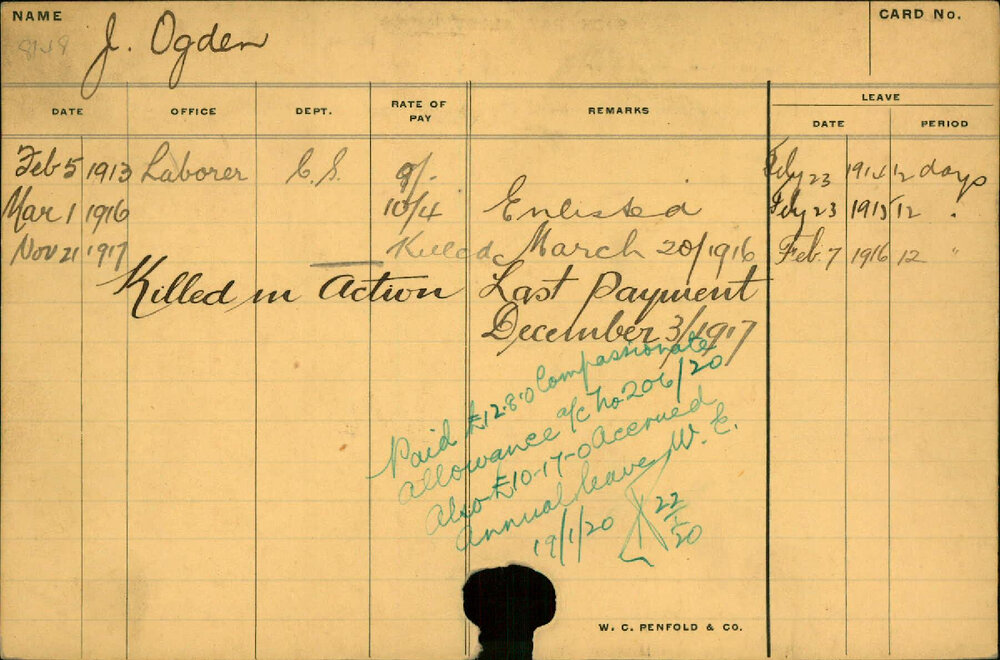 NAME
8148
J. Ogden
CARD No.
DATE OFFICE DEPT. RATE OF PAY REMARKS LEAVE
DATE PERIOD
Feb 5 1913 Laborer C.S. 9/- 23 1914 12 days
Mar 1 1916 10/4 Enlisted 23 1915 12 "
Nov 21 1917 Killed March 20/1916 Feb. 7 1916 12 "
Killed in Action Last Payment
December 3/1917
Paid £12.8.0 Compassionate
allowance a/c No 206/20
Also £10-17-0 Accrued
annual leave W. E.
19/1/20
22/1/20
W. C. PENFOLD & CO.